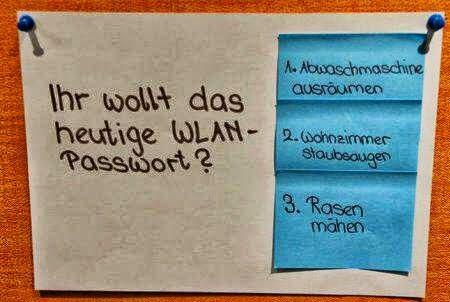 Ihr wollt das
heutige WLAN-
Passwort?
1. Abwaschmaschine
ausräumen
2. Wohnzimmer
staubsaugen
3. Rasen
mähen